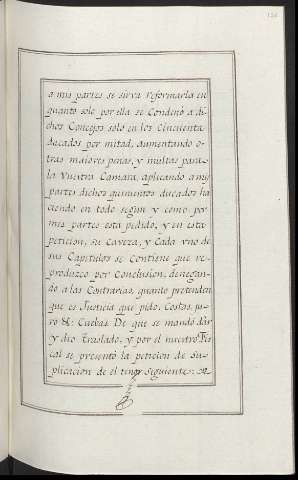 a mis partes se sirva reformarla en
quanto solo por ella se Condenò a di-
chos Concejos solo en los Cincuenta
ducados por mitad, aumentando o-
tras maiores penas, y multas para
la Vuestra Camara, aplicando a my
partes dichos quinientos ducados ha
ciendo en todo segun y como por
mis partes esta pedido, y en esta
peticion, su Caveza, y Cada vno de
sus Capitulos se Contiene que re-
produzco por Conclusion, denegan-
do a las Contrarias, quanto pretenden
que es Justicia que pido, Costas, ju-
ro &c: Cuebas De que se mandò dàr
y dio Traslado, y por el nuestro Fis
cal se presentò la peticion de Su-
plicacion de el tenor siguiente: